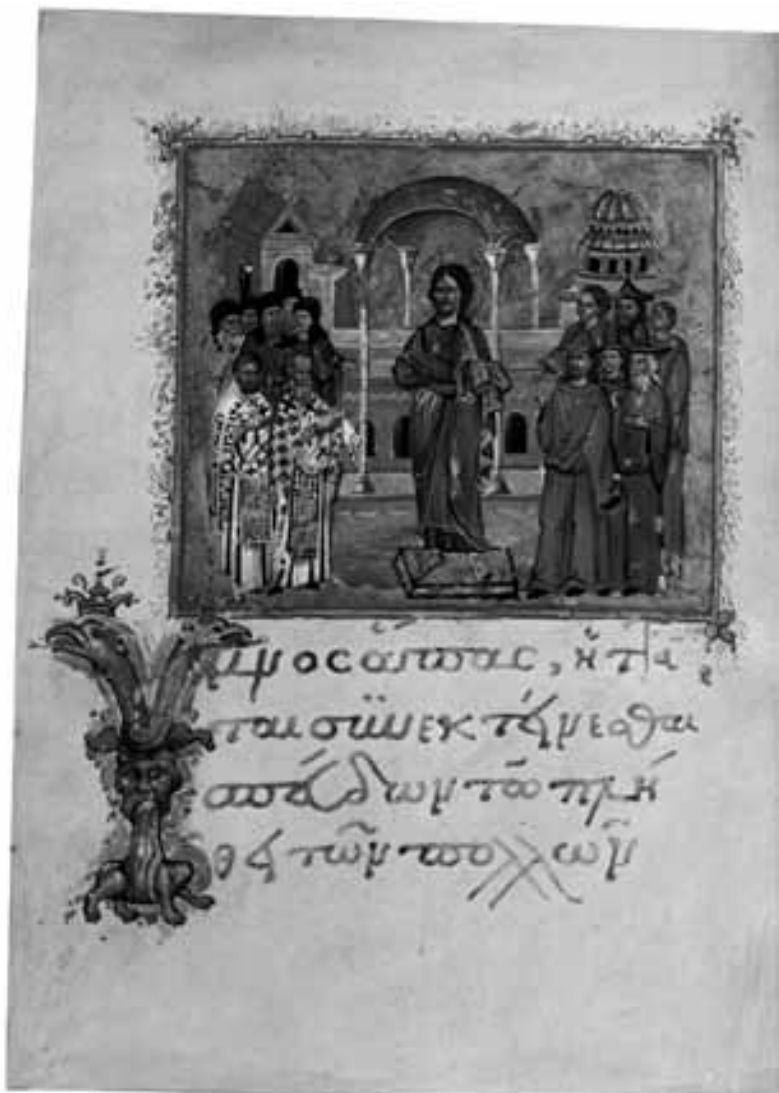 Ὕμνος ἅπας, ἡττᾶ
ται συνεκτείνεσθαι
σπεύδων τῶ πλή
θει τῶν πολλῶν